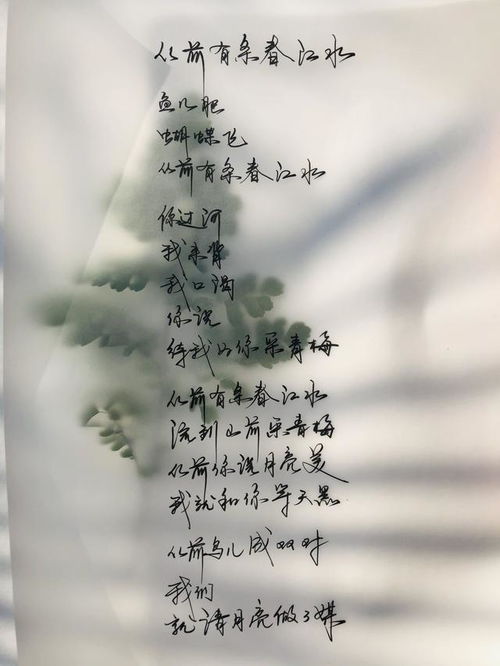 从前有条春江水
鱼儿肥
蝴蝶飞
从前有条春江水
你过河
我来背
我口渴
你说
待我为你采青梅
从前有条春江水
流到山前采青梅
从前你说月亮美
我就和你等天黑
从前鸟儿成双对
我们
就请月亮做了媒